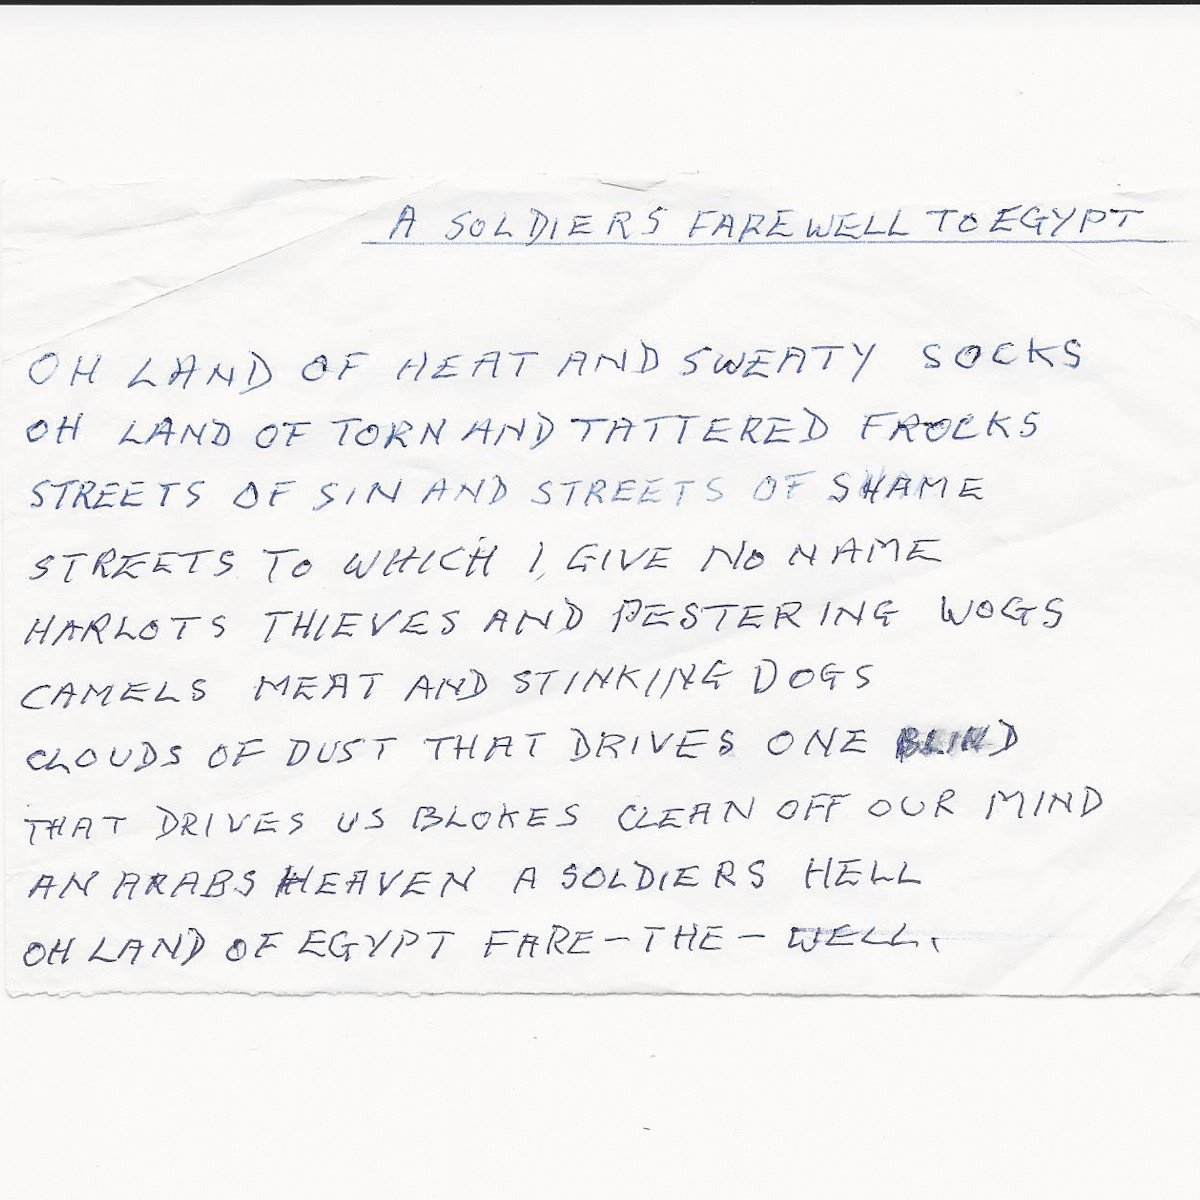 A SOLDIERS FAREWELL TO EGYPT
OH LAND OF HEAT AND SWEATY SOCKS
OH LAND OF TORN AND TATTERED FROCKS
STREETS OF SIN AND STREETS OF SHAME
STREETS TO WHICH I, GIVE NO NAME
HARLOTS THIEVES AND PESTERING WOGS
CAMELS MEAT AND STINKING DOGS
CLOUDS OF DUST THAT DRIVES ONE BLIND
THAT DRIVES US BLOKES CLEAN OFF OUR MIND
AN ARABS HEAVEN A SOLDIERS HELL
OH LAND OF EGYPT FARE-THE-WELL.